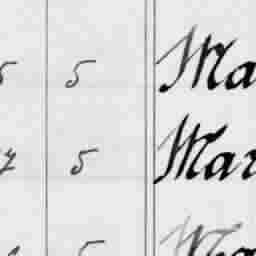 5 5 Ma
7 5 Mar
5 Ma